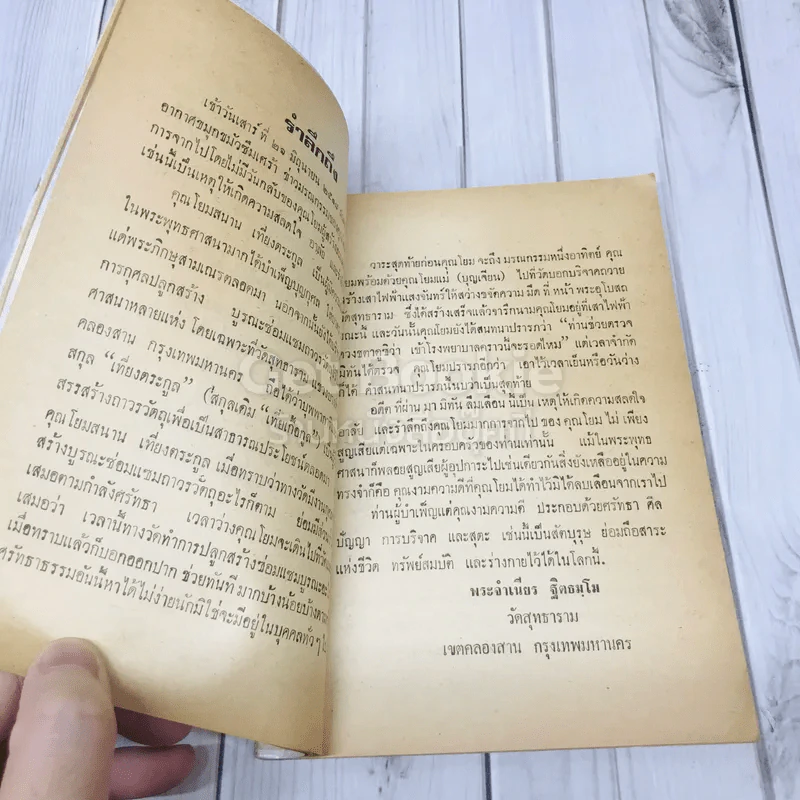 รำลึกถึง
เช้าวันเสาร์ ที่ ๒๑ มิถุนายน
อากาศขมุกขมัวซึมเศร้า
การจากไปโดยไม่มีวันกลับของคุณโยม
เช่นนี้เป็นเหตุให้เกิดความสลดใจ อาลัย
คุณโยมสนาน เที่ยงตระกูล
ในพระพุทธศาสนามากได้บำเพ็ญบุญ
แด่พระภิกษุสามเณรตลอดมา นอกจากนั้น
การกุศลปลูกสร้าง บูรณะซ่อมแซมถาวร
ศาสนาหลายแห่ง โดยเฉพาะที่วัดสุทธาราม
คลองสาน กรุงเทพมหานคร ถือได้ว่า
สกุล “เที่ยงตระกูล” (สกุลเดิม
สรรสร้างถาวรวัตถุเพื่อเป็นสาธารณประโยชน์ตลอดมา
คุณโยมสนาน เที่ยงตระกูล เมื่อทราบว่าทางวัดมีงาน
สร้างบูรณะซ่อมแซมถาวรวัตถุอะไรก็ตาม ย่อมมีส่วน
เสมอตามกำลังศรัทธา เวลาว่างคุณโยมจะเดินไปที่วัด
เสมอว่า เวลานี้ทางวัดทำการปลูกสร้างซ่อมแซมบูรณะ
เมื่อทราบแล้วก็บอกออกปาก ช่วยทันที มากบ้างน้อยบ้าง
ศรัทธาธรรมอันนี้หาได้ไม่ง่ายนักมิใช่จะมีอยู่ในบุคคลทั่ว ๆ
วาระสุดท้ายก่อนคุณโยม จะถึง มรณกรรมหนึ่งอาทิตย์ คุณ
โยมพร้อมด้วยคุณโยมแม่ (บุญเจียน) ไปที่วัดบอกบริจาคถวาย
สร้างเสาไฟฟ้าแสงจันทร์ให้สว่างขจัดความ มืด ที่ หน้า พระอุโบสถ
วัดสุทธาราม ซึ่งได้สร้างเสร็จแล้วจารึกนามคุณโยมอยู่ที่เสาไฟฟ้า
ขณะนี้ และวันนั้นคุณโยมยังได้สนทนาปรารภว่า “ท่านช่วยตรวจ
ดวงชตาดูซิว่า เข้าโรงพยาบาลคราวนี้จะรอดไหม” แต่เวลาจำกัด
มิทันได้ตรวจ คุณโยมปรารภอีกว่า เอาไว้เวลาเย็นหรือวันว่าง
ก็ได้ คำสนทนาปรารมนั้นนับว่าเป็นสุดท้าย
อดีต ที่ผ่าน มา มิทัน ลืมเลือน นี้เป็น เหตุให้เกิดความสลดใจ
อาลัย และรำลึกถึงคุณโยมมากการจากไป ของ คุณโยม ไม่ เพียง
สูญเสียแต่เฉพาะในครอบครัวของท่านเท่านั้น แม้ในพระพุทธ
ศาสนาก็พลอยสูญเสียผู้อุปการะไปเช่นเดียวกันสิ่งยังเหลืออยู่ในความ
ทรงจำก็คือ คุณงามความดีที่คุณโยมได้ทำไว้มิได้ลบเลือนจากเราไป
ท่านผู้บำเพ็ญแต่คุณงามความดี ประกอบด้วยศรัทธา ศีล
ปัญญา การบริจาค และสุตะ เช่นนี้เป็นสัตบุรุษ ย่อมถือสาระ
แห่งชีวิต ทรัพย์สมบัติ และร่างกายไว้ได้ในโลกนี้.
พระจำเนียร ฐิตธมฺโม
วัดสุทธาราม
เขตคลองสาน กรุงเทพมหานคร